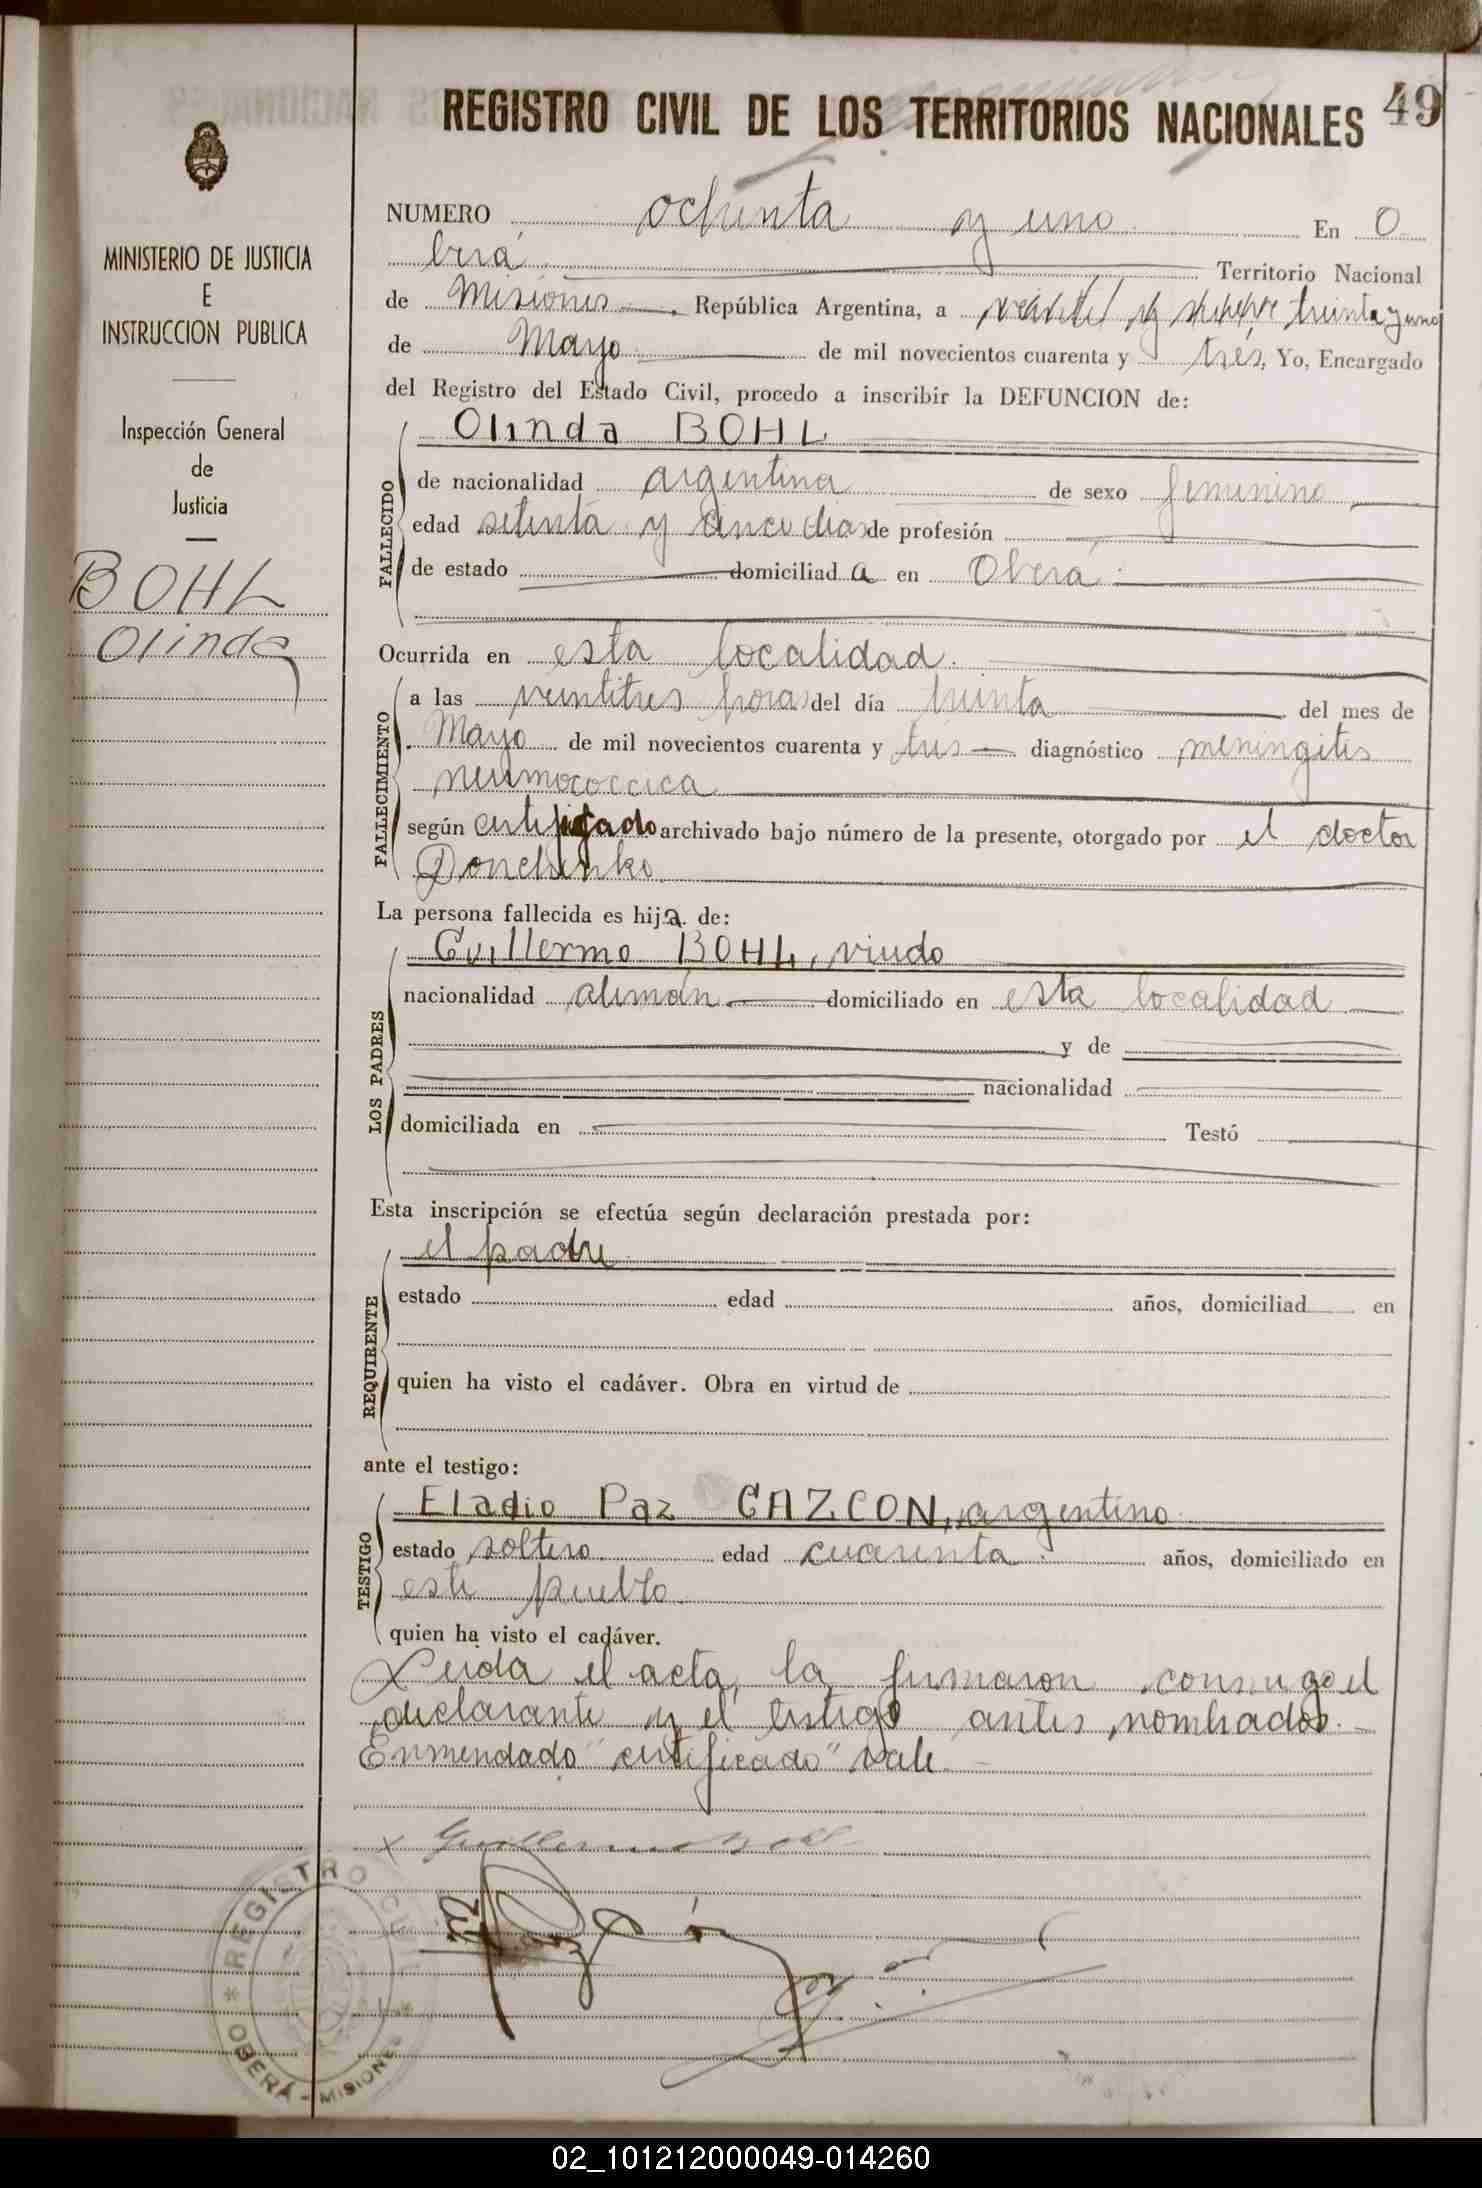 49
REGISTRO CIVIL DE LOS TERRITORIOS NACIONALES
MINISTERIO DE JUSTICIA
E
INSTRUCCION PUBLICA
Inspección General
de
Justicia
BOHL
Olinda
NUMERO ochenta y uno En O
berá Territorio Nacional
de Misiones, República Argentina, a treinta y uno
de Mayo de mil novecientos cuarenta y tres, Yo, Encargado
del Registro del Estado Civil, procedo a inscribir la DEFUNCION de:
Olinda BOHL
FALLECIDO
de nacionalidad argentina de sexo femenino
edad setenta y cinco dias de profesión
de estado domiciliada en Oberá
Ocurrida en esta localidad.
FALLECIMIENTO
a las veintitres horas del día treinta del mes de
Mayo de mil novecientos cuarenta y tres diagnóstico meningitis
neumococcica
según certificado archivado bajo número de la presente, otorgado por el doctor
Donchenko
La persona fallecida es hija de:
LOS PADRES
Guillermo BOHL, viudo
nacionalidad alemán domiciliado en esta localidad
y de
nacionalidad
domiciliada en Testó
Esta inscripción se efectúa según declaración prestada por:
REQUIRENTE
el padre
estado edad años, domiciliad en
quien ha visto el cadáver. Obra en virtud de
ante el testigo:
TESTIGO
Eladio Paz GAZCON, argentino
estado soltero edad cuarenta años, domiciliado en
este pueblo.
quien ha visto el cadáver.
Leida el acta, la firmaron conmigo el
declarante y el testigo antes nombrados.
Enmendado "certificado" vale
x Guillermo Bohl
REGISTRO CIVIL
OBERÁ - MISIONES
02_101212000049-014260